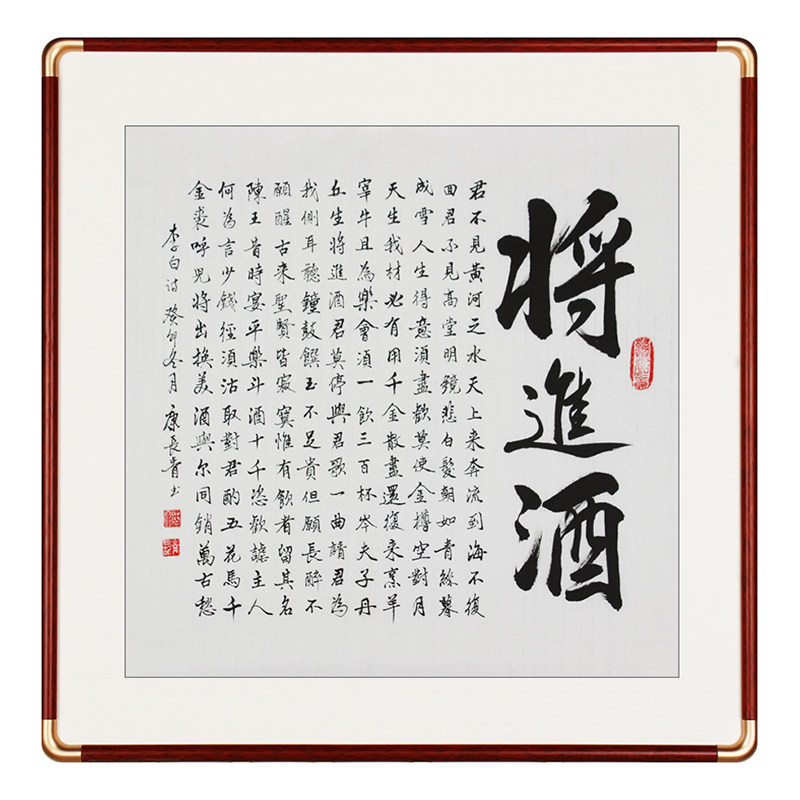 將進酒
君不見黃河之水天上来奔流到海不復
回君不見高堂明鏡悲白髮朝如青絲暮
成雪人生得意須盡歡莫使金樽空對月
天生我材必有用千金散盡還復来烹羊
宰牛且為樂會須一飲三百杯岑夫子丹
丘生將進酒君莫停與君歌一曲請君為
我側耳聽鐘鼓饌玉不足貴但願長醉不
願醒古来聖賢皆寂寞惟有飲者留其名
陳王昔時宴平樂斗酒十千恣歡謔主人
何為言少錢徑須沽取對君酌五花馬千
金裘呼兒將出換美酒與尔同銷萬古愁
李白诗癸卯冬月康長青书